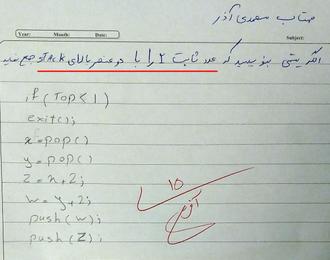 مهتاب سعدی آذر
Year: Month: Date: Subject:
الگوریتمی بنویسید که عدد ثابت ۲ را با دو عنصر بالای stack جمع نماید
if (Top < 1)
exit();
x=pop()
y=pop()
z=x+2;
w=y+2;
push(w);
push(Z);
۱۵